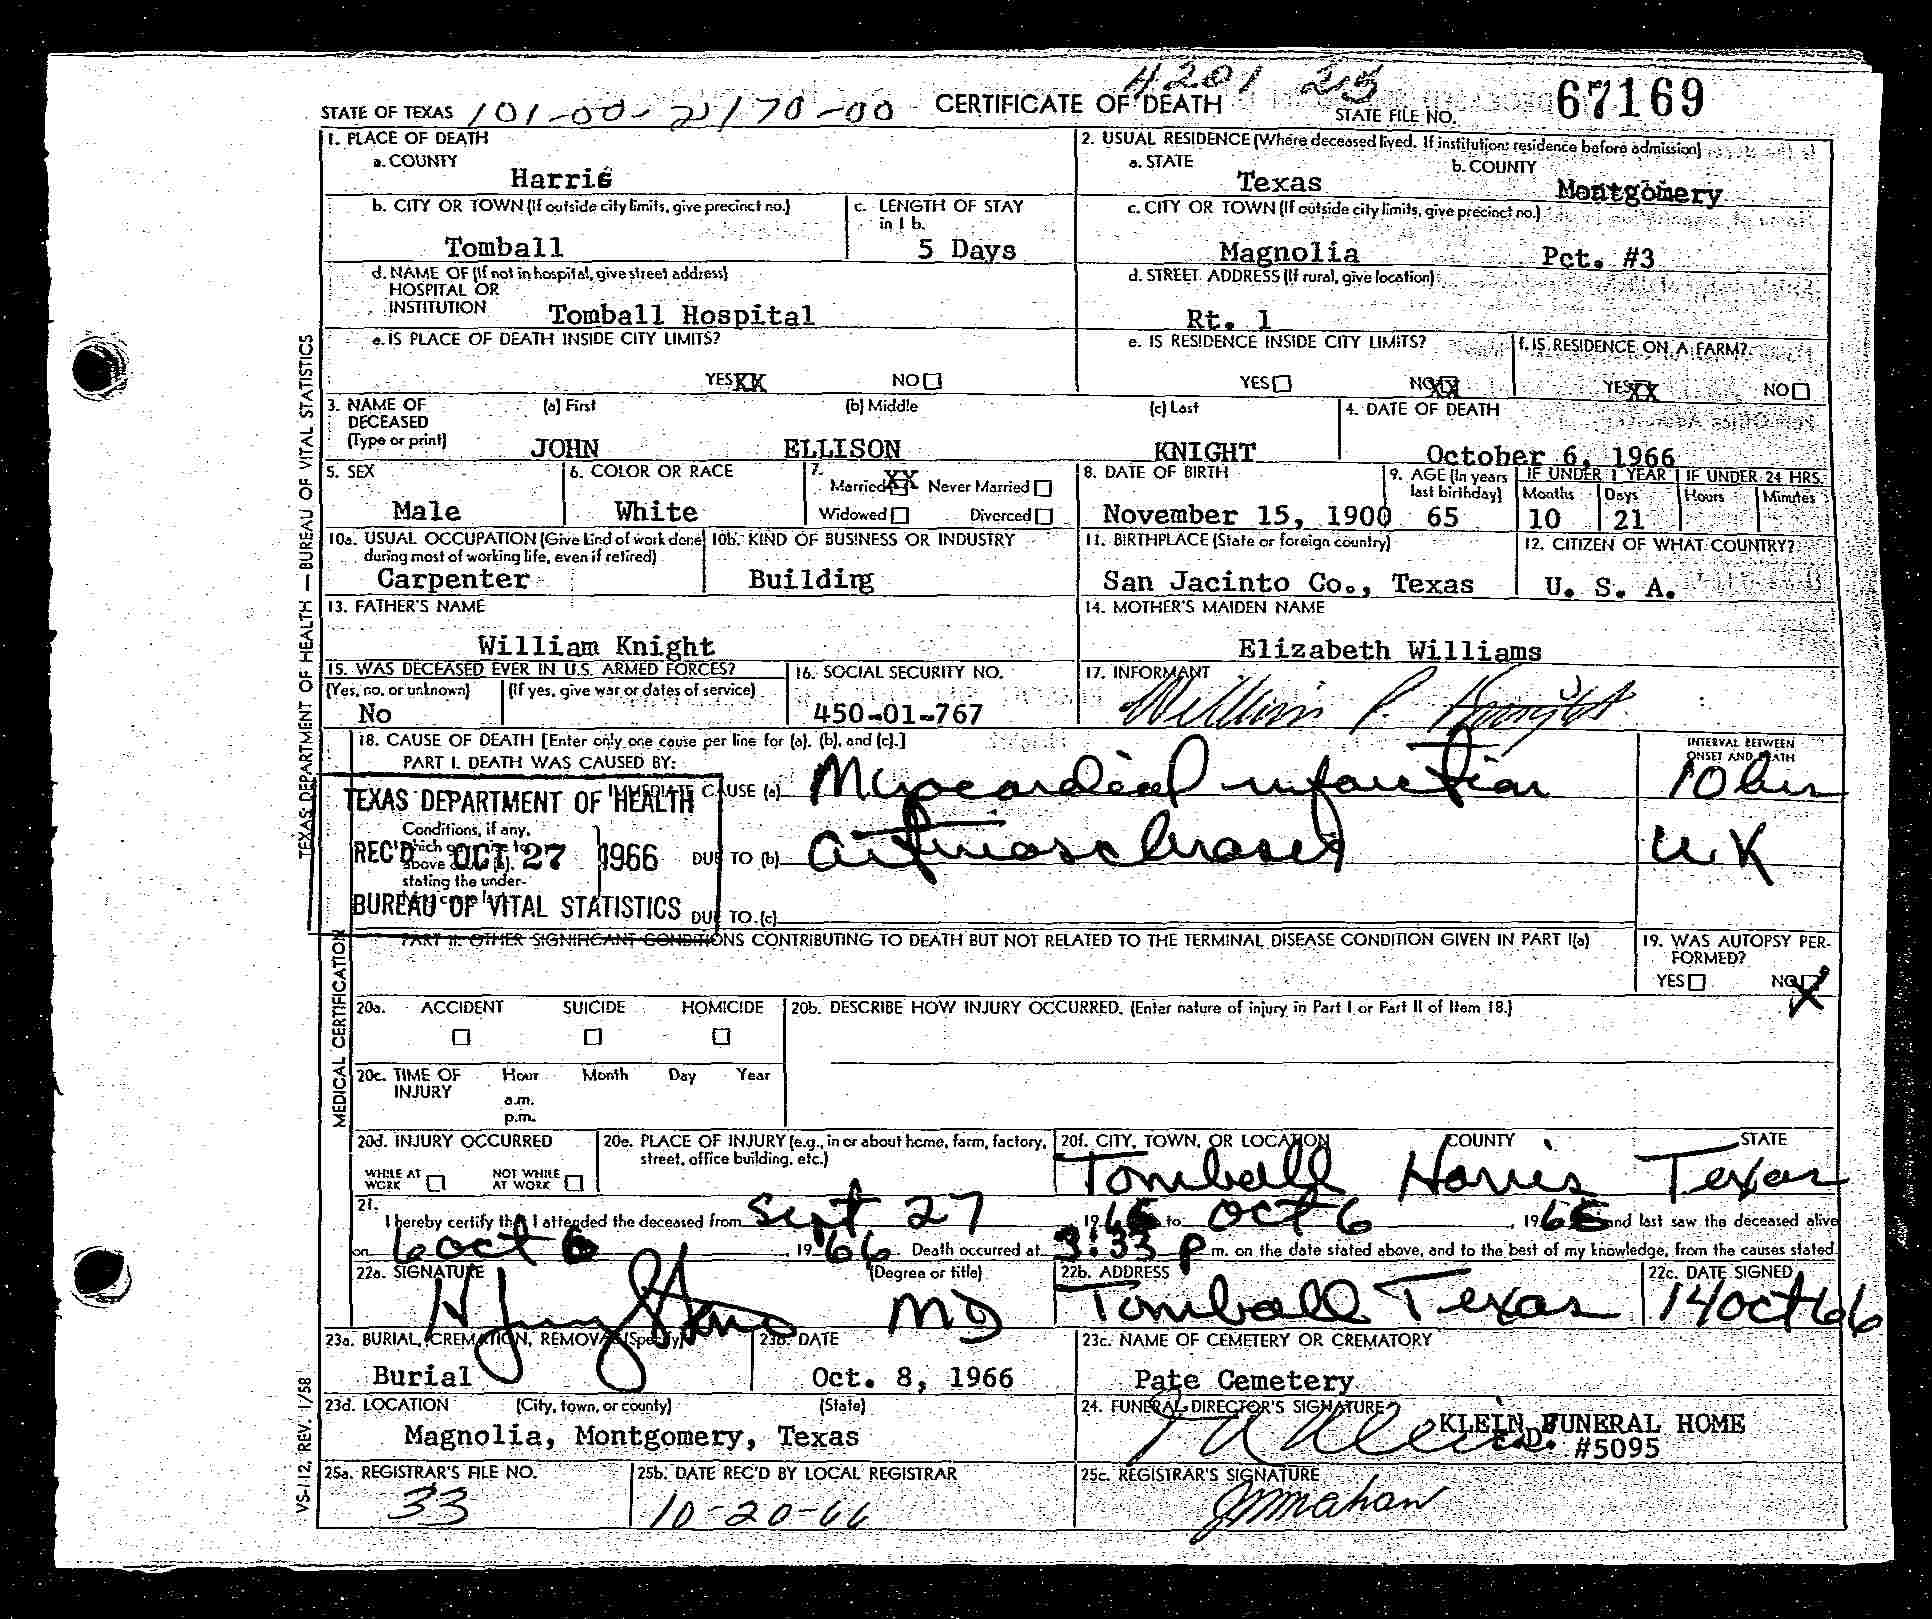 4201 213
STATE OF TEXAS 101-00-2170-00 CERTIFICATE OF DEATH STATE FILE NO. 67169
1. PLACE OF DEATH
a. COUNTY
Harris
2. USUAL RESIDENCE (Where deceased lived. If institution: residence before admission)
a. STATE
Texas
b. COUNTY
Montgomery
b. CITY OR TOWN (If outside city limits, give precinct no.)
Tomball
c. LENGTH OF STAY in 1 b.
5 Days
c. CITY OR TOWN (If outside city limits, give precinct no.)
Magnolia Pct. #3
d. NAME OF (If not in hospital, give street address)
HOSPITAL OR
INSTITUTION Tomball Hospital
d. STREET ADDRESS (If rural, give location)
Rt. 1
e. IS PLACE OF DEATH INSIDE CITY LIMITS?
YES XX NO
e. IS RESIDENCE INSIDE CITY LIMITS?
YES NO XX
f. IS RESIDENCE ON A FARM?
YES XX NO
3. NAME OF DECEASED (Type or print)
(a) First (b) Middle (c) Last
JOHN ELLISON KNIGHT
4. DATE OF DEATH
October 6, 1966
5. SEX
Male
6. COLOR OR RACE
White
7. Married XX Never Married
Widowed Divorced
8. DATE OF BIRTH
November 15, 1900
9. AGE (In years last birthday)
65
IF UNDER 1 YEAR IF UNDER 24 HRS.
Months Days Hours Minutes
10 21
10a. USUAL OCCUPATION (Give kind of work done during most of working life, even if retired)
Carpenter
10b. KIND OF BUSINESS OR INDUSTRY
Building
11. BIRTHPLACE (State or foreign country)
San Jacinto Co., Texas
12. CITIZEN OF WHAT COUNTRY?
U. S. A.
13. FATHER'S NAME
William Knight
14. MOTHER'S MAIDEN NAME
Elizabeth Williams
15. WAS DECEASED EVER IN U.S. ARMED FORCES?
(Yes, no, or unknown) (If yes, give war or dates of service)
No
16. SOCIAL SECURITY NO.
450-01-767
17. INFORMANT
William P. Knight
18. CAUSE OF DEATH [Enter only one cause per line for (a), (b), and (c).]
PART I. DEATH WAS CAUSED BY:
INTERVAL BETWEEN ONSET AND DEATH
IMMEDIATE CAUSE (a) Myocardial infarction 10 hrs
Conditions, if any, which gave rise to above cause (a), stating the under-lying cause last.
DUE TO (b) arteriosclerosis UK
DUE TO (c)
TEXAS DEPARTMENT OF HEALTH
REC'D OCT 27 1966
BUREAU OF VITAL STATISTICS
PART II. OTHER SIGNIFICANT CONDITIONS CONTRIBUTING TO DEATH BUT NOT RELATED TO THE TERMINAL DISEASE CONDITION GIVEN IN PART I(a)
19. WAS AUTOPSY PER-FORMED?
YES NO X
20a. ACCIDENT SUICIDE HOMICIDE
20b. DESCRIBE HOW INJURY OCCURRED. (Enter nature of injury in Part I or Part II of Item 18.)
20c. TIME OF INJURY Hour Month Day Year
a.m.
p.m.
20d. INJURY OCCURRED
WHILE AT WORK NOT WHILE AT WORK
20e. PLACE OF INJURY (e.g., in or about home, farm, factory, street, office building, etc.)
20f. CITY, TOWN, OR LOCATION COUNTY STATE
Tomball Harris Texas
21.
I hereby certify that I attended the deceased from Sept 27 1966 to Oct 6, 1966 and last saw the deceased alive
on 6 oct 6, 19 66. Death occurred at 3:33 p m. on the date stated above, and to the best of my knowledge, from the causes stated.
22a. SIGNATURE (Degree or title)
MD
22b. ADDRESS
Tomball Texas
22c. DATE SIGNED
14 oct 66
23a. BURIAL, CREMATION, REMOVAL (Specify)
Burial
23b. DATE
Oct. 8, 1966
23c. NAME OF CEMETERY OR CREMATORY
Pate Cemetery
23d. LOCATION (City, town, or county) (State)
Magnolia, Montgomery, Texas
24. FUNERAL DIRECTOR'S SIGNATURE
KLEIN FUNERAL HOME
#5095
25a. REGISTRAR'S FILE NO.
33
25b. DATE REC'D BY LOCAL REGISTRAR
10-20-66
25c. REGISTRAR'S SIGNATURE
TEXAS DEPARTMENT OF HEALTH — BUREAU OF VITAL STATISTICS
MEDICAL CERTIFICATION
VS-112, REV. 1/58